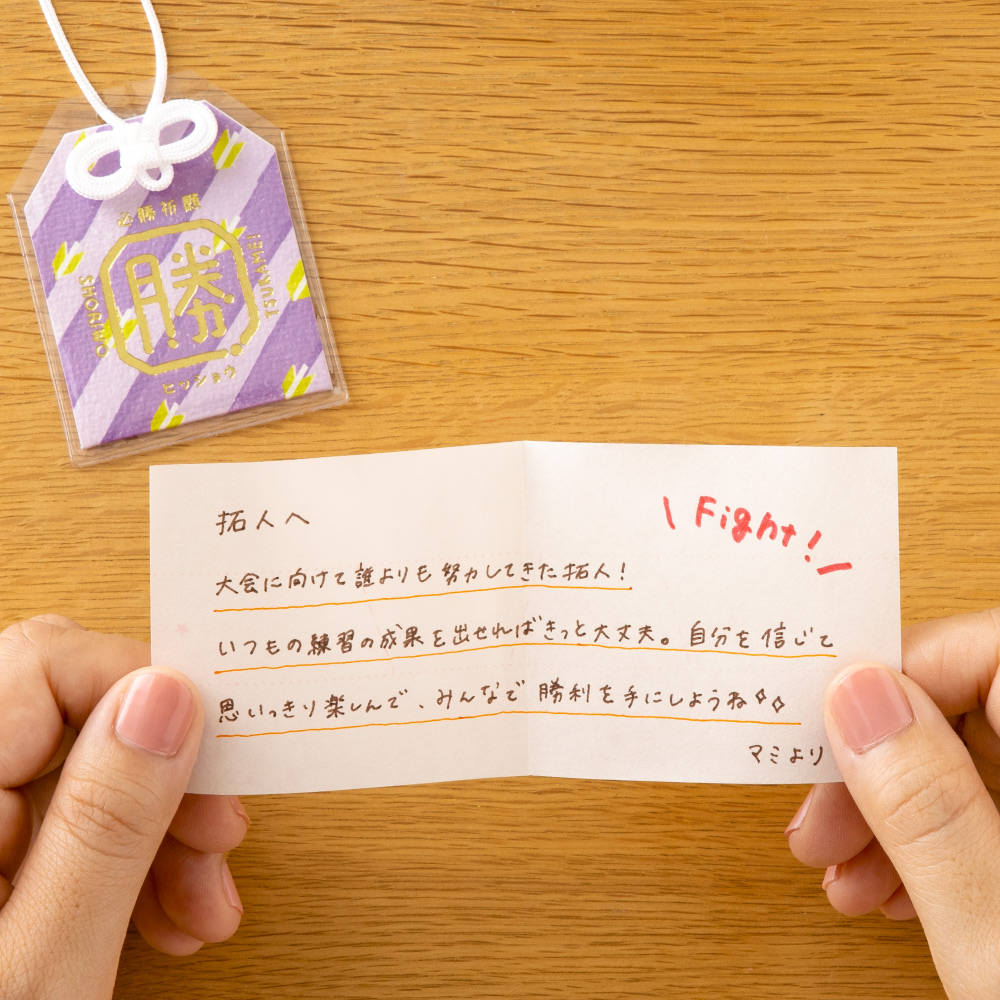 必勝祈願
勝
SHORINO
TSUKAME!
ヒッショウ
\ Fight! /
拓人へ
大会に向けて誰よりも努力してきた拓人!
いつもの練習の成果を出せればきっと大丈夫。自分を信じて
思いっきり楽しんで、みんなで勝利を手にしようね
マミより